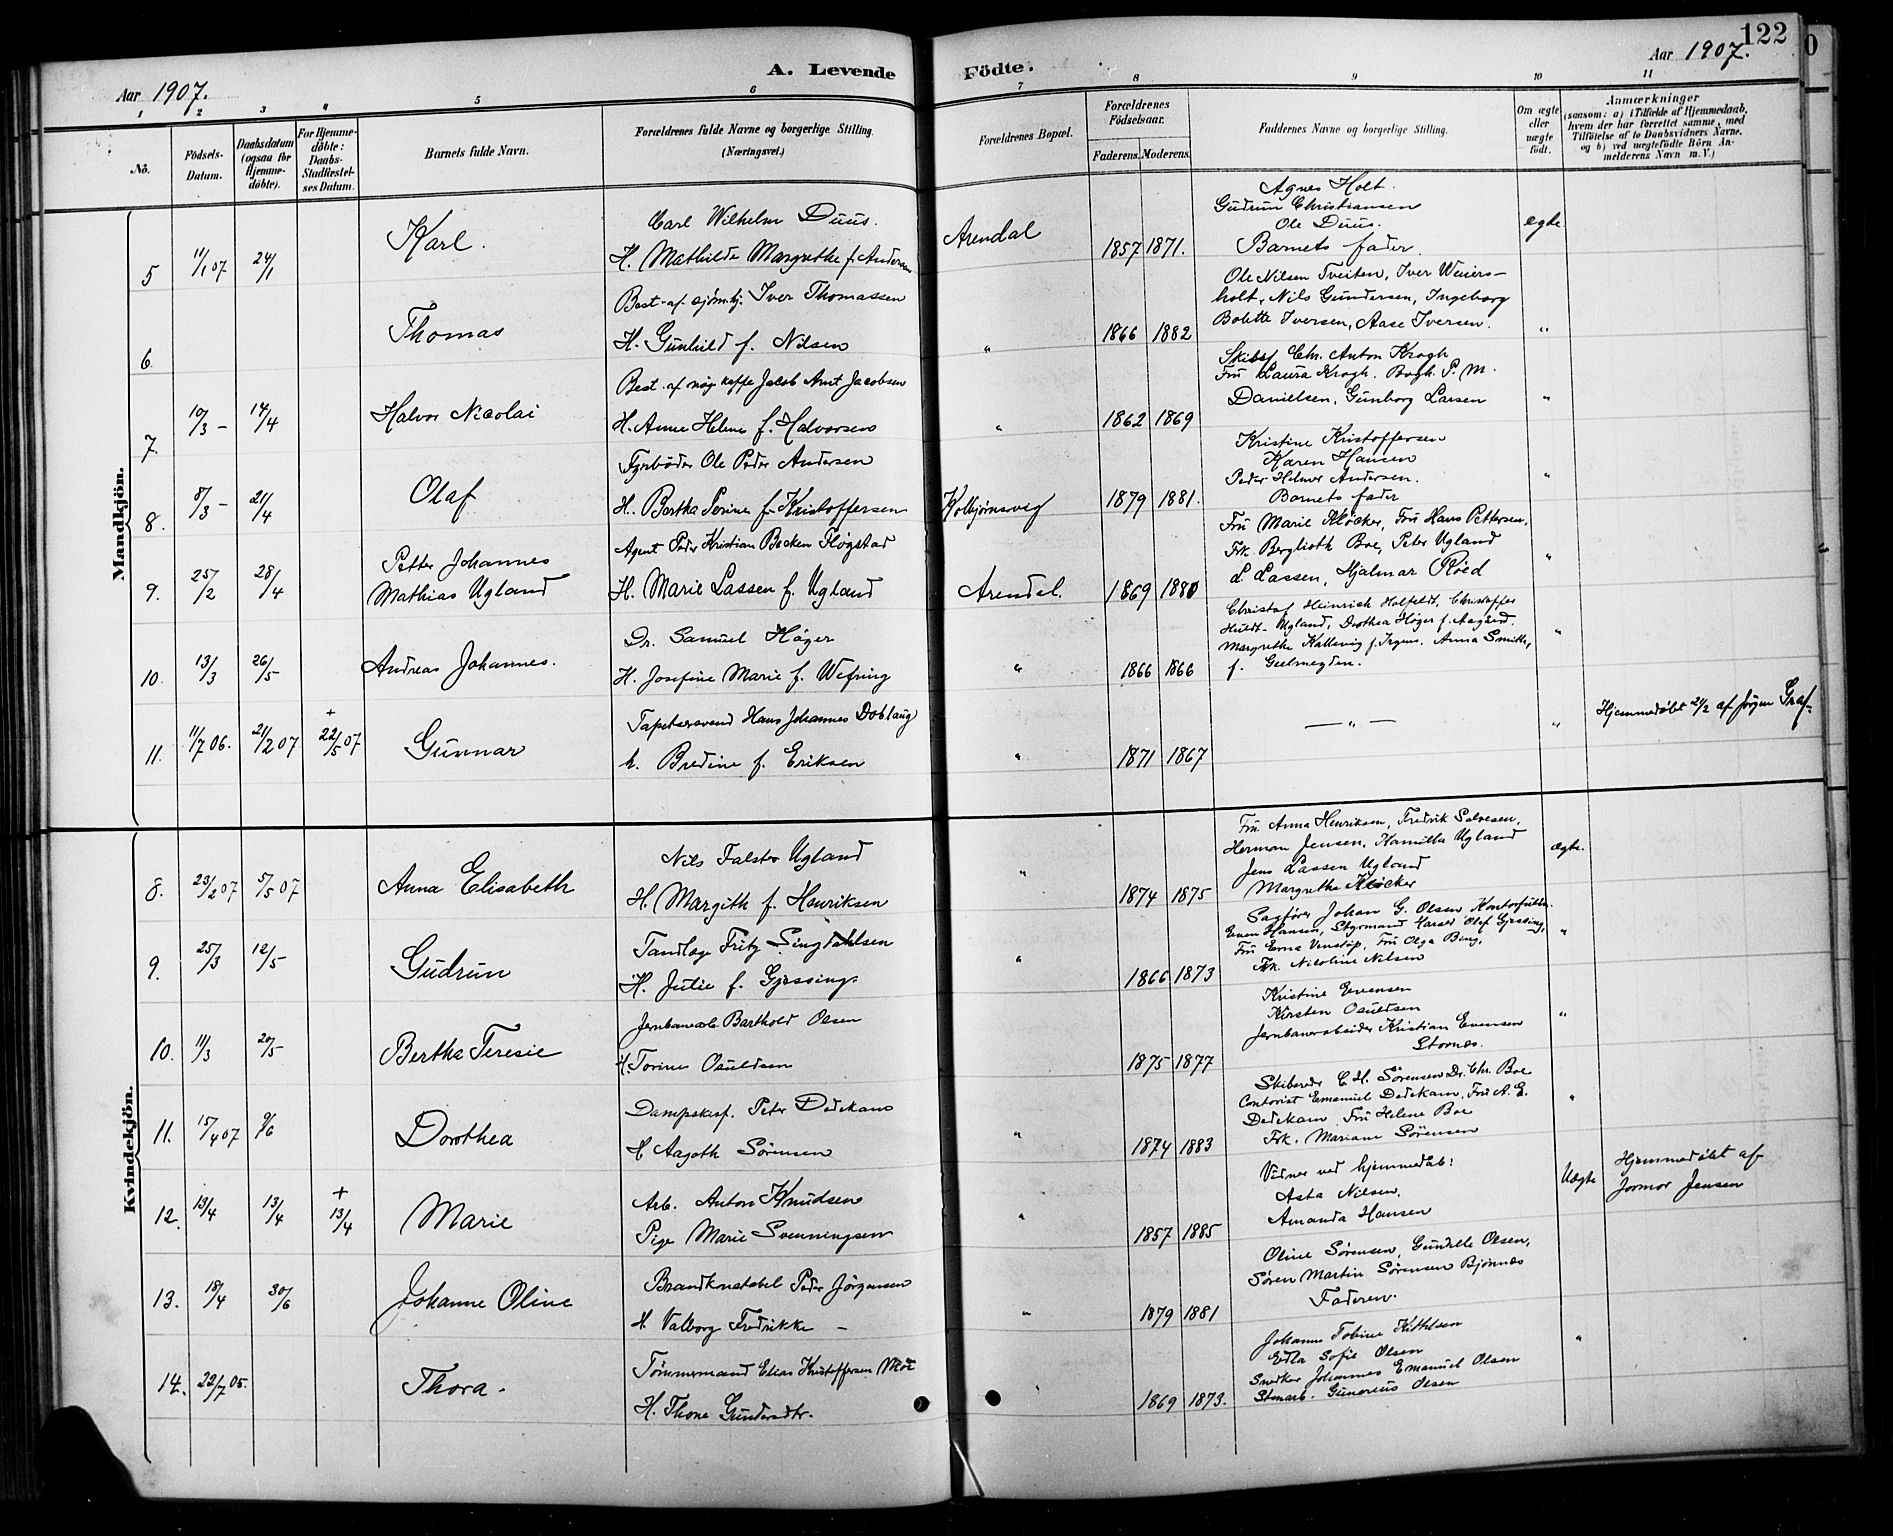 122
Aar 1907.
A. Levende
Födte.
Aar 1907.
1 2 3 4 5 6 7 8 9 10 11
No.
Födsels-Datum.
Daabsdatum (ogsaa for Hjemmedøbte).
For Hjemmedöbte: Daabs-Stadfæstelses Datum.
Barnets fulde Navn.
Forældrenes fulde Navne og borgerlige Stilling.
(Næringsvei.)
Forældrenes Bopæl.
Forældrenes Födselsaar.
Faderens. Moderens.
Faddernes Navne og borgerlige Stilling.
Om ægte eller uægte født.
Anmærkninger
(saasom: a) i Tilfælde af Hjemmedaab, hvem der har forrettet samme, med Tilföielse af to Daabsvidners Navne, og b) ved uægtefödte Börn Anmelderens Navn m. V.)
Mandkjön.
5 11/1 07 24/1 Karl.
Carl Wilhelm Duus.
H. Mathilde Margrethe f. Andersen
Arendal 1857 1871.
Agnes Holt.
Gudrun Christiansen
Ole Duus.
Barnets fader
ægte
6. Thomas
Best. af sjømhj. Iver Thomassen
H. Gunhild f. Nilsen
" 1866 1882
Ole Nilsen Tveiten, Iver Weiers-
holt, Nils Gundersen, Ingeborg
Bolette Iversen, Aase Iversen.
"
7. 10/3 - 14/4 Halvor Nicolai
Best. af Jacob Arnt Jacobsen
H. Anne Helene f. Halvorsen
" 1862 1869
Chr. Anton Krogh
Fru Laura Krogh. Bogh. P. M.
Danielsen, Gunborg Larsen
"
8. 8/3 - 21/4 Olaf
Fyrbøder Ole Peder Andersen
H. Bertha Serine f. Kristoffersen
Kolbjørnsvig 1879 1881.
Kristine Kristoffersen
Karen Hansen
Peder Helmer Andersen.
Barnets fader
"
9. 25/2 28/4 Petter Johannes
Mathias Ugland
Agent Peder Kristian Becken Fløgstad
H. Marie Lassen f. Ugland
Arendal. 1869 1880
Fru Marie Kløcker, Fru Hans Pettersen,
Frk. Berglioth Boe, Peter Ugland
L. Lassen, Hjalmar Røed
"
10. 13/3 26/5 Andreas Johannes.
Dr. Samuel Høger
H. Josefine Marie f. Wefring
" 1866 1866
Christof Heinrich Holfeldt, Christoffer
Ugland, Dorothea Høger f.
Margrethe Kallevig f. Irgens. Anna Smith,
f. Geelmeyden.
"
11. 11/7 06. 21/2 07 + 22/5 07 Gunnar
Tapetsersvend Hans Johannes Doblaug
h. Bredine f. Eriksen
" 1871 1867
— " —
"
Hjemmedøbt 21/2 af Jørgen Graf.
Kvindekjön.
8. 23/2 07 5/5 07 Anna Elisabeth
Nils Falster Ugland
H. Margith f. Henriksen
" 1874 1875
Fru Anna Henriksen, Fredrik Salvesen,
Herman Jensen, Kamilla Ugland
Jens Lassen Ugland
Margrethe Kløcker
ægte.
9. 25/3 12/5 Gudrun
Tandlæge Fritz Singdahlsen
H. Julie f. Gjessing
" 1866 1873
Sagfører Johan G. Olsen
Even Hansen, Styrmand Olaf Gjessing,
Fru Erna Venstøp, Fru Olga Bing,
Frk. Nicoline Nilsen
"
10. 11/3 20/5 Bertha Teresie
Jernbanearb. Barthold Olsen
H. Torine Osuldsen
1875 1877
Kristine Evensen
Kirsten Osuldsen
Jernbanearbeider Kristian Evensen
Stornes.
"
11. 15/4 07 9/6 Dorothea
Dampskesf. Peter Dedekam
H. Aagoth Sørensen
" 1874 1883
Skibsreder C. H. Sørensen Dr. Chr. Boe
Contorist Emanuel Dedekam, Fru A. E.
Dedekam, Fru Helene Boe
Frk. Mariane Sørensen
"
12. 13/4 13/4 + 13/4 Marie
Arb. Anton Knudsen
Pige Marie Svenningsen
" 1857 1885
Vidner ved hjemmedåb:
Asta Nilsen.
Amanda Hansen
Uægte
Hjemmedøbt af
Jormor Jensen
13. 18/4 30/6 Johanne Oline
Brandkonstabel Peder Jørgensen
H. Valborg Fredrikke —
" 1879 1881
Oline Sørensen, Gunille Olsen,
Søren Martin Sørensen Bjønnes
Faderen.
14. 22/7 05. Thora.
Tømmermand Elias Kristoffersen Moe
H. Thone Gundersdtr.
" 1869 1873.
Johanne Tobine Kittelsen
Edla Sofie Olsen
Snedker Johannes Emanuel Olsen
Stenarb. Gunerius Olsen
"